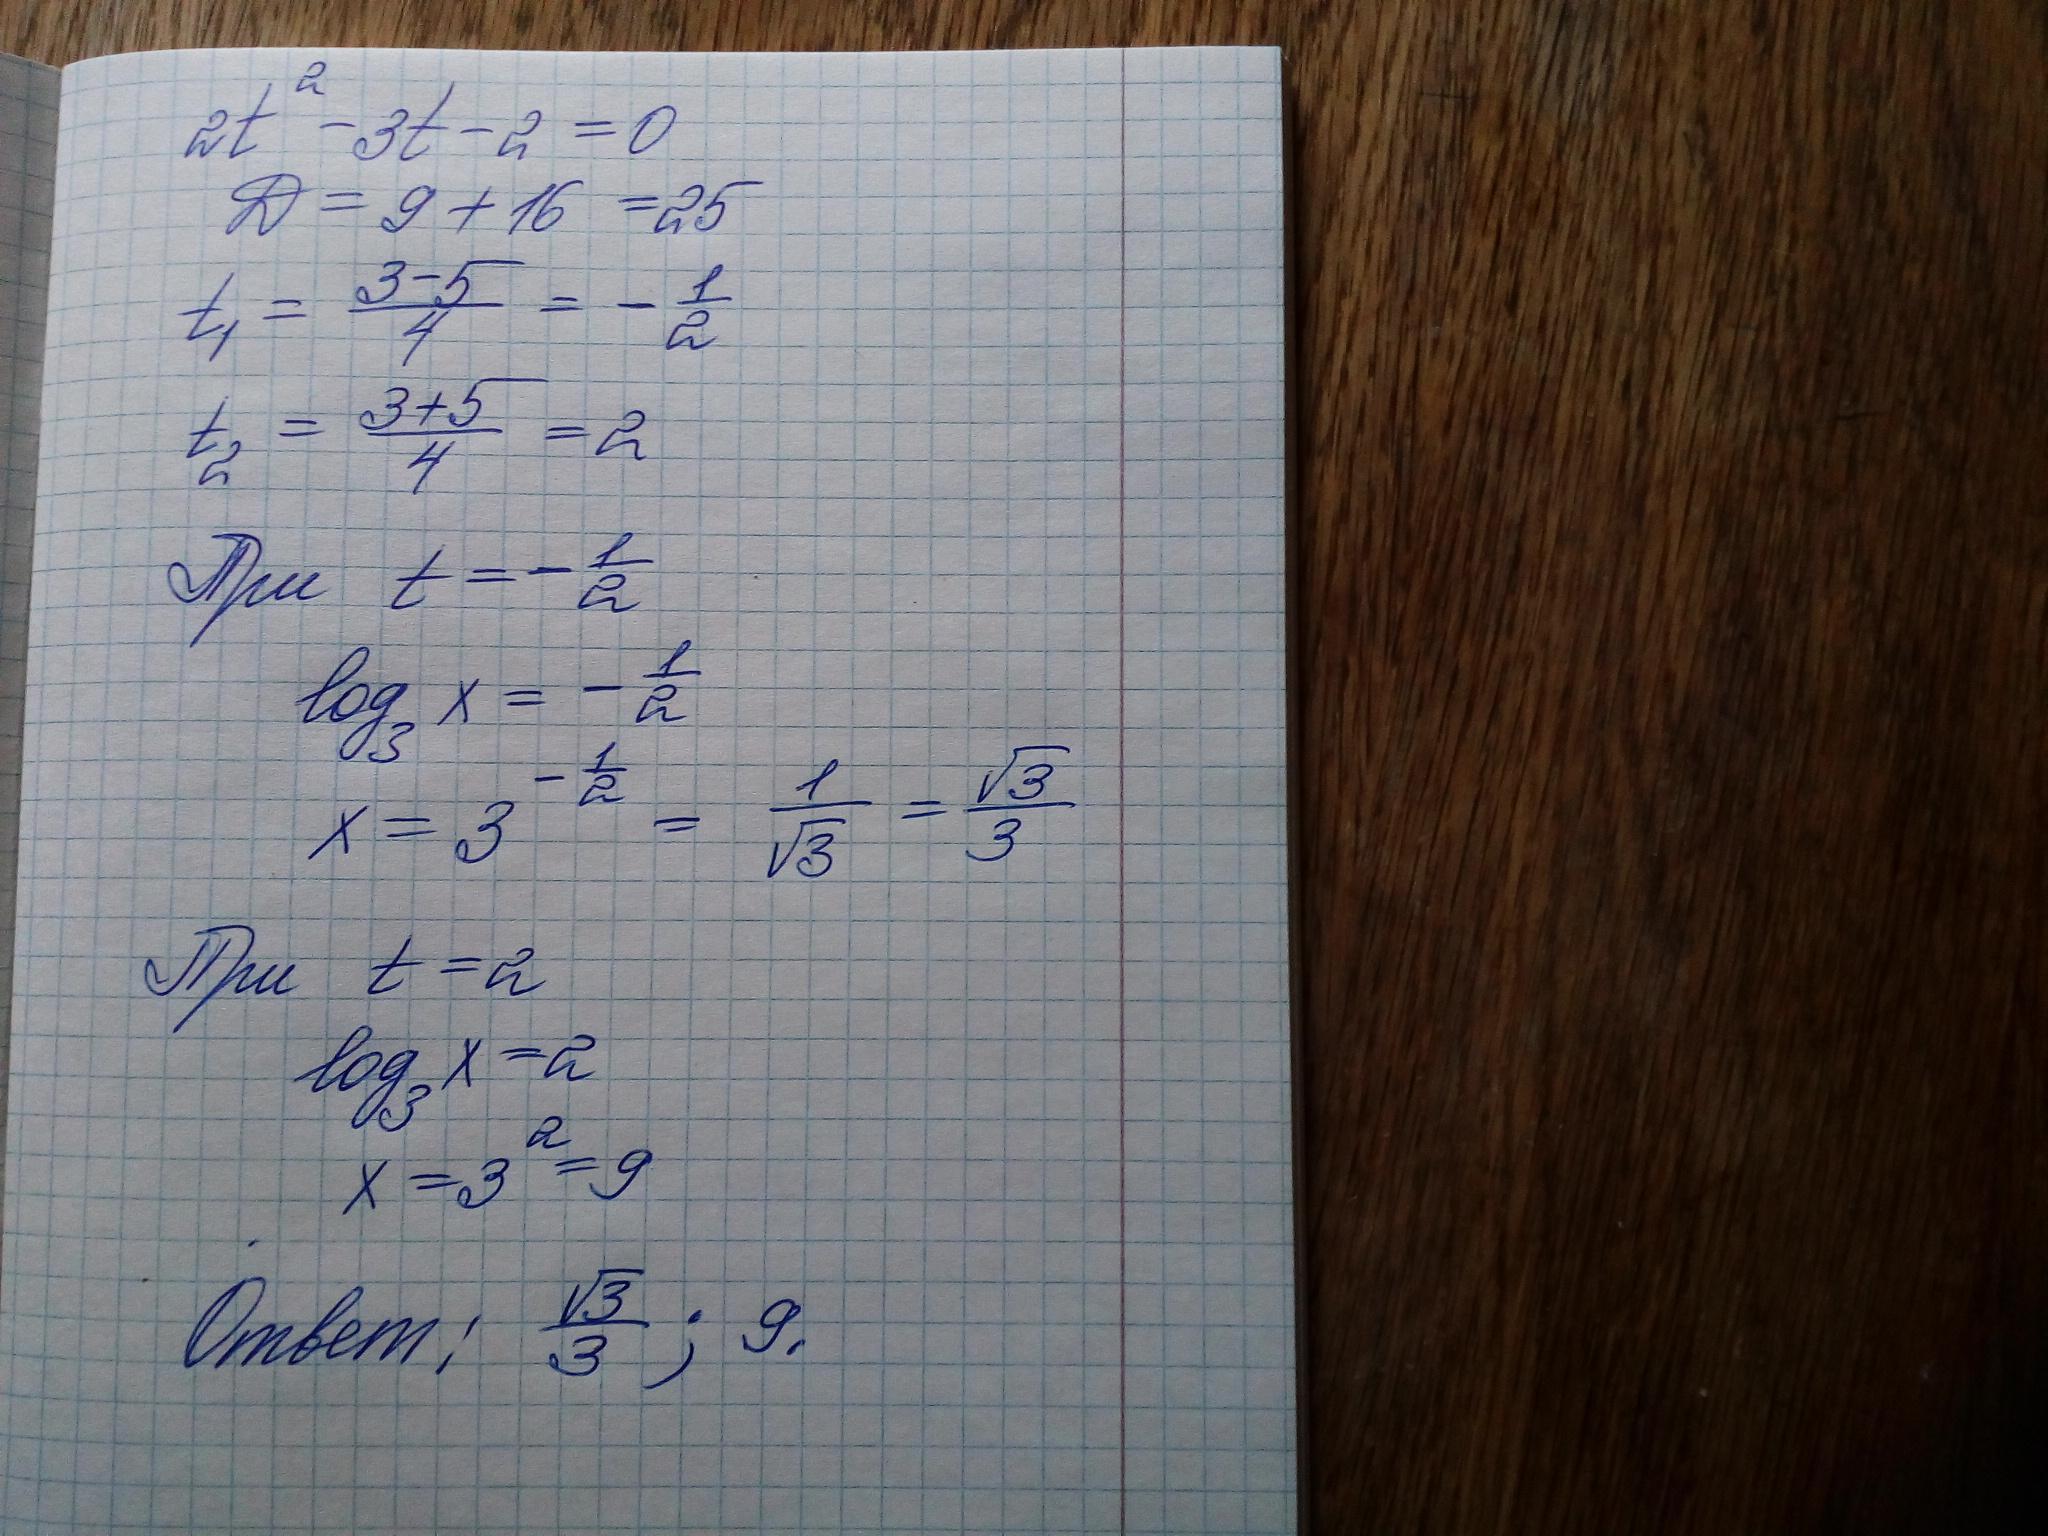 2t² - 3t - 2 = 0
D = 9 + 16 = 25
t₁ = (3-5)/4 = - 1/2
t₂ = (3+5)/4 = 2
При t = - 1/2
log₃ x = - 1/2
x = 3^(-1/2) = 1/√3 = √3/3
При t = 2
log₃ x = 2
x = 3² = 9
Ответ: √3/3 ; 9.